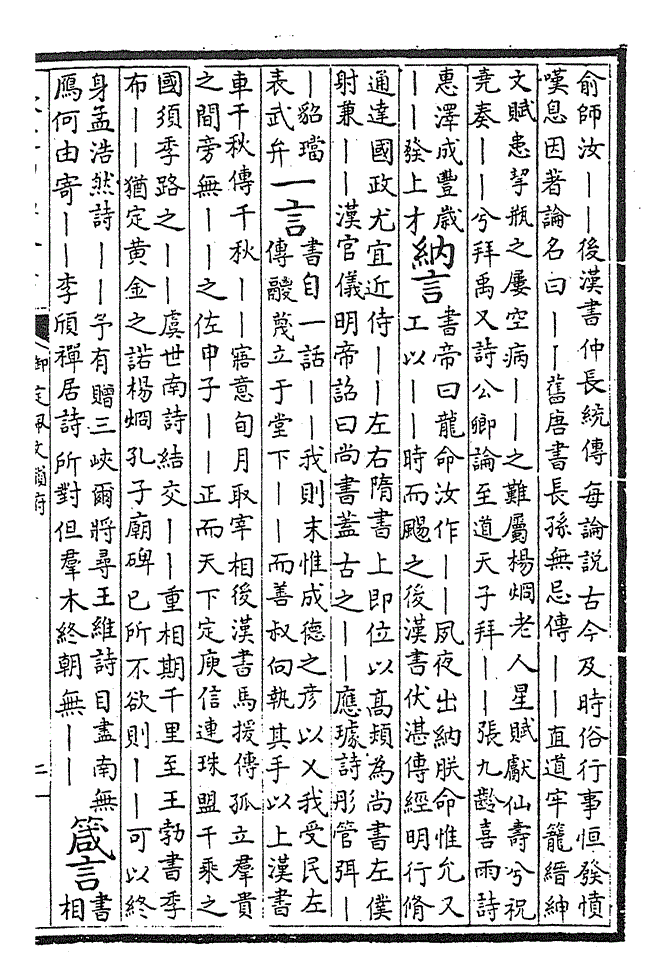 俞師汝——後漢書仲長統傳每論説古今及時俗行事恒發憤
嘆息因著論名曰——舊唐書長孫無忌傳——直道牢籠縉紳
文賦患挈瓶之屢空病——之難屬楊烱老人星賦獻仙壽兮祝
堯奏——兮拜禹又詩公卿論至道天子拜——張九齡喜雨詩
惠澤成豐歲
——發上才
納言
書帝曰龍命汝作——夙夜出納朕命惟允又
工以——時而颺之後漢書伏湛傳經明行脩
通達國政尤宜近侍——左右隋書上即位以髙頻為尚書左僕
射兼——漢官儀明帝詔曰尚書蓋古之——應璩詩彤管弭—
—貂璫
表武弁
一言
書自一話——我則末惟成德之彦以乂我受民左
傳鬷蔑立于堂下——而善叔向執其手以上漢書
車千秋傳千秋——寤意旬月取宰相後漢書馬援傳孤立羣貴
之間旁無——之佐申子——正而天下定庾信連珠盟千乘之
國須季路之——虞世南詩結交——重相期千里至王勃書季
布——猶定黄金之諾楊烱孔子廟碑已所不欲則——可以終
身孟浩然詩——予有贈三峽爾將尋王維詩目盡南無
鴈何由寄——李頎禪居詩所對但羣木終朝無——
箴言
書
相
御定佩文韻府